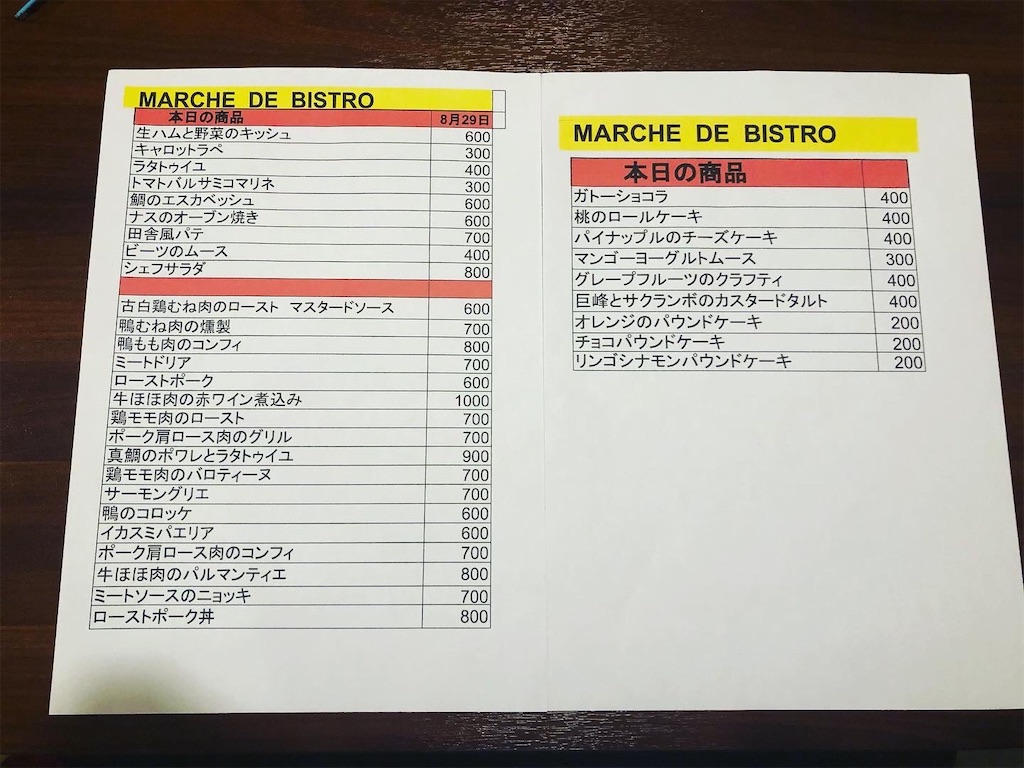 MARCHE DE BISTRO
本日の商品 8月29日
生ハムと野菜のキッシュ 600
キャロットラペ 300
ラタトゥイユ 400
トマトバルサミコマリネ 300
鯛のエスカベッシュ 600
ナスのオーブン焼き 600
田舎風パテ 700
ビーツのムース 400
シェフサラダ 800
古白鶏むね肉のロースト マスタードソース 600
鴨むね肉の燻製 700
鴨もも肉のコンフィ 800
ミートドリア 700
ローストポーク 600
牛ほほ肉の赤ワイン煮込み 1000
鶏モモ肉のロースト 700
ポーク肩ロース肉のグリル 700
真鯛のポワレとラタトゥイユ 900
鶏モモ肉のバロティーヌ 700
サーモングリエ 700
鴨のコロッケ 600
イカスミパエリア 600
ポーク肩ロース肉のコンフィ 700
牛ほほ肉のパルマンティエ 800
ミートソースのニョッキ 700
ローストポーク丼 800
MARCHE DE BISTRO
本日の商品
ガトーショコラ 400
桃のロールケーキ 400
パイナップルのチーズケーキ 400
マンゴーヨーグルトムース 300
グレープフルーツのクラフティ 400
巨峰とサクランボのカスタードタルト 400
オレンジのパウンドケーキ 200
チョコパウンドケーキ 200
リンゴシナモンパウンドケーキ 200